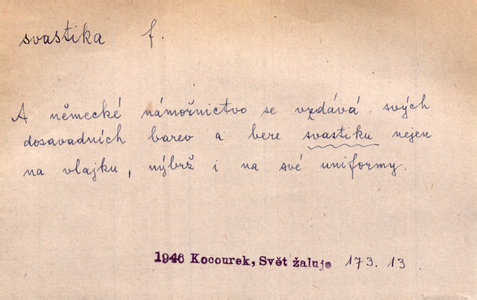 svastika f.
A německé námořnictvo se vzdává svých
dosavadních barev a bere svastiku nejen
na vlajku, nýbrž i na své uniformy.
1946 Kocourek, Svět žaluje 173.13.